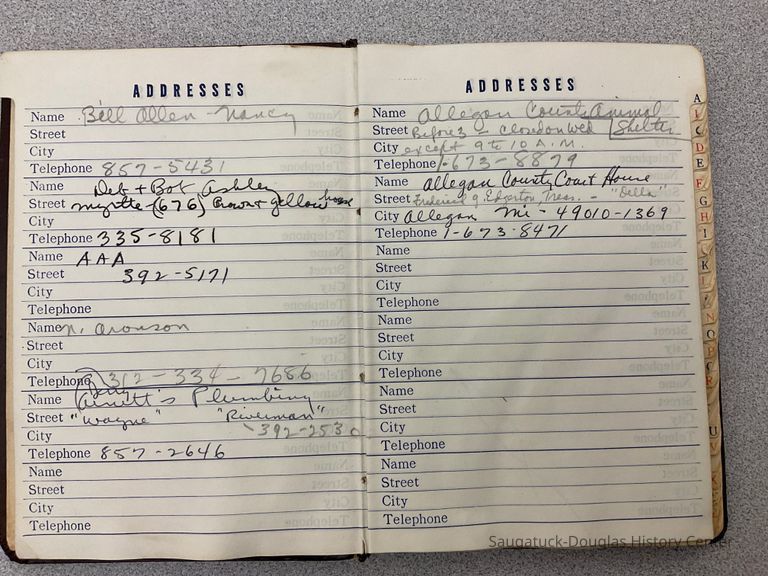 ADDRESSES
Name Bill Allen - Nancy
Street
City
Telephone 857-5431
Name Deb + Bob Ashley
Street Myrtle - (676) Brown + yellow house
City
Telephone 335-8181
Name AAA
Street 392-5171
City
Telephone
Name N. Aronson
Street
City
Telephone 312-334-7686
Name Arnett's Plumbing
Street "Wayne" "Riverman"
City 392-2530
Telephone 857-2646
Name
Street
City
Telephone
ADDRESSES
Name Allegan County Animal
Street Before 3 - closed on Wed Shelter
City except 9 to 10 A.M.
Telephone 1-673-8879
Name Allegan County Court House
Street Frederick J. Edgerton, Treas. - "Della"
City Allegan Mi - 49010-1369
Telephone 1-673-8471
Name
Street
City
Telephone
Name
Street
City
Telephone
Name
Street
City
Telephone
Name
Street
City
Telephone
A
C
D
E
F
G
H
I
K
L
N
O
P
R
U
Saugatuck-Douglas History Center